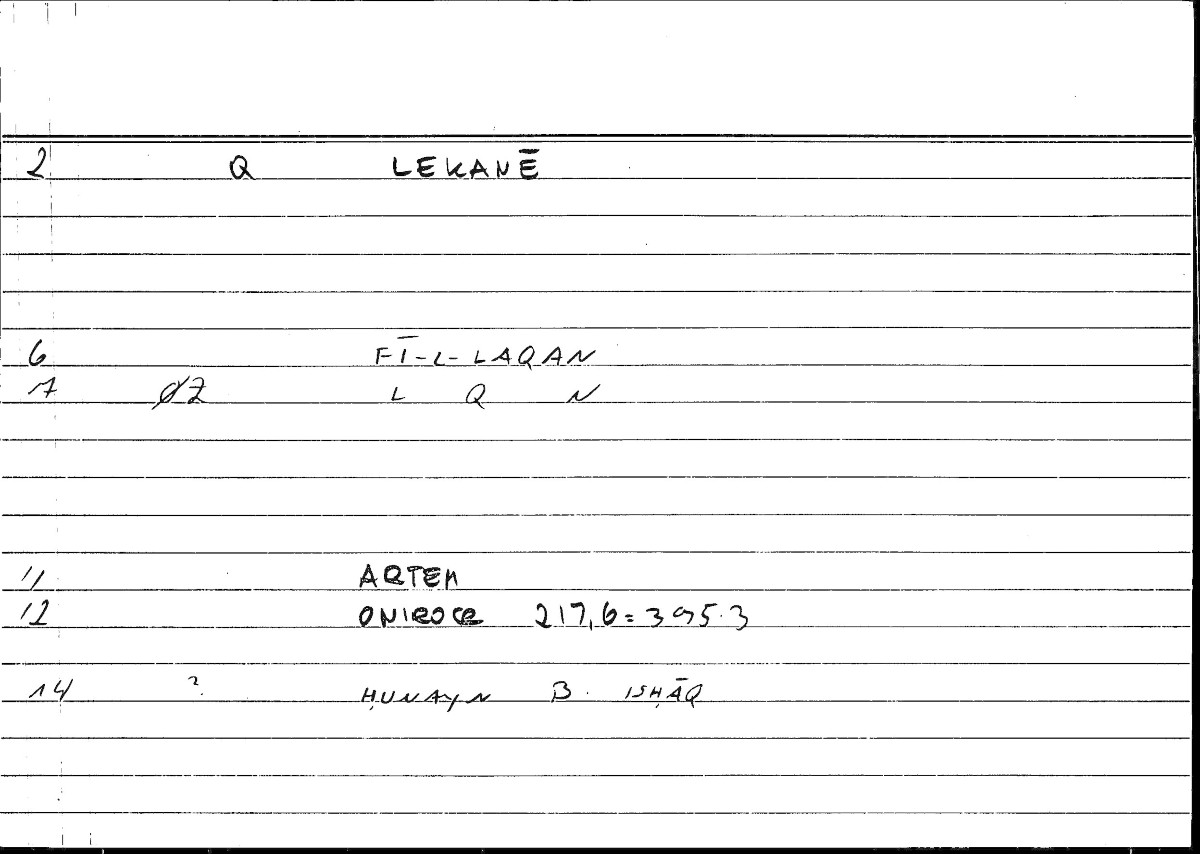 2 Q LEKANĒ
6 FĪ-L-LAQAN
7 ØZ L Q N
11 ARTEM
12 ONIROCR 217,6=395.3
14 ? ḤUNAYN B. ISḤĀQ